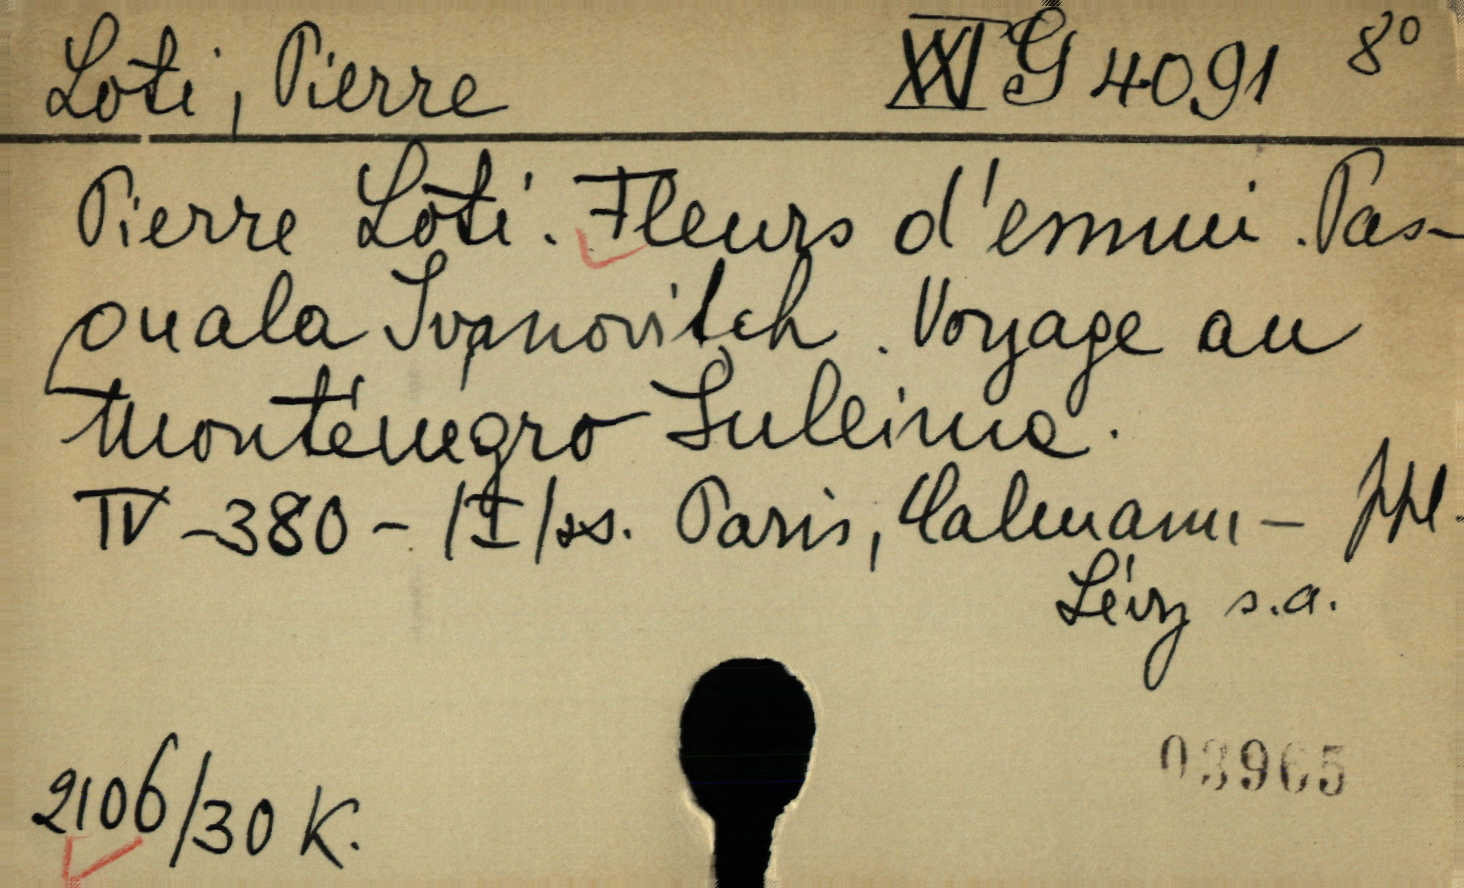 Loti, Pierre XXI G 4091 8°
Pierre Loti. Fleurs d'ennui. Pas-
quala Ivanovitch. Voyage au
Monténégro Suleima.
IV -380 - /I/ss. Paris, Calmann-
Lévy s.a.
2106/30 K.
03965